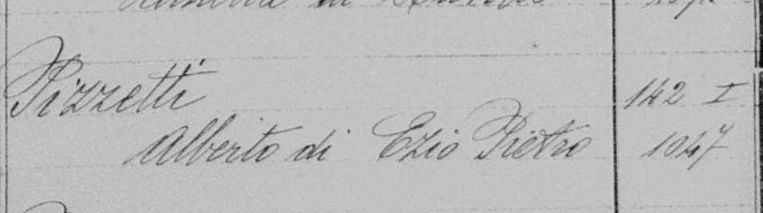 Pizzetti 142 I
Alberto di Ezio Pietro 1047